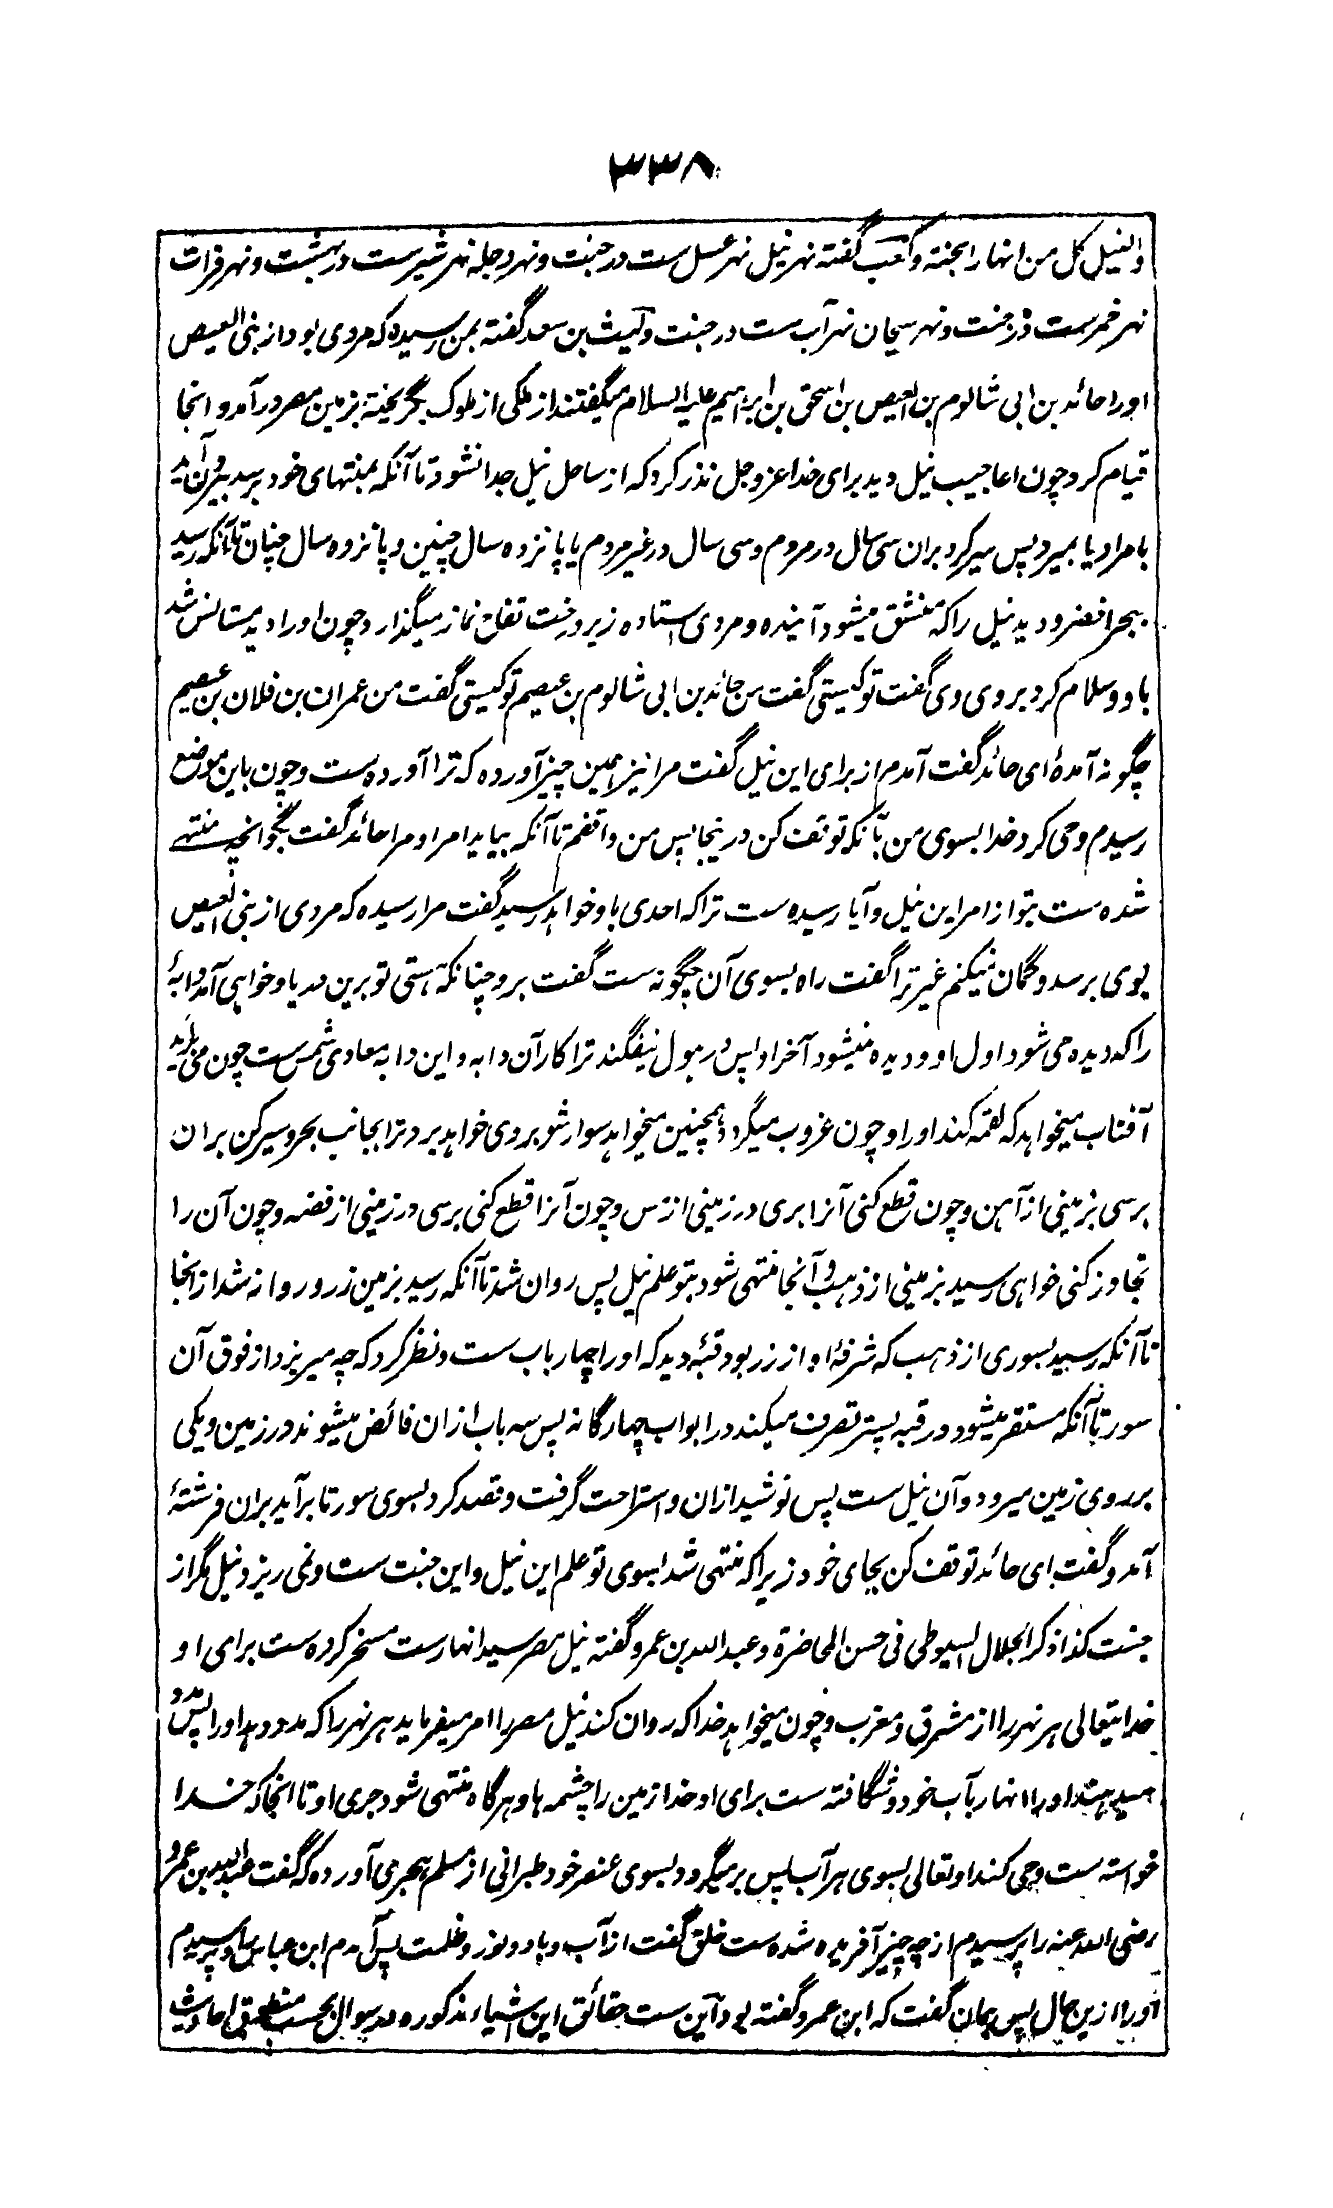 ۳۳۸
والنیل کل من انهار الجنة و کعب گفته نهر نیل نهر عسل ست در جنت و نهر دجله نهر شیر ست در بهشت و نهر فرات
نهر خمر ست در جنت و نهر سیحان نهر آب ست در جنت و لیث بن سعد گفته بمن رسیده که مردی بود از بنی العیص
او را حائد بن ابی شالوم بن العیص بن اسحق بن ابراهیم علیه السلام میگفتند از ملکی از ملوک بگریخته بزمین مصر در آمد و انجا
قیام کرد چون اعاجیب نیل دید برای خدا عزوجل نذر کرد که از ساحل نیل جدا نشود تا آنکه بمنتهای خود برسد بیرون آید
بامراد یا بمیرد پس سیر کرد بران سی سال در مردم و سی سال در غیر مردم یا پانزده سال چنین و پانزده سال چنان تا آنکه رسید
ببحر اخضر و دید نیل را که منشق میشود آینده و مردی استاده زیر درخت تفاح نماز میگذارد چون او را دید مستانس شد
باو و سلام کرد بر وی وی گفت تو کیستی گفت من حائد بن ابی شالوم بن عیصم تو کیستی گفت من عمران بن فلان بن عیصم
چگونه آمدهٔ ای حائد گفت آمدم از برای این نیل گفت مرا نیز همین چیز آورده که ترا آورده ست و چون باین موضع
رسیدم وحی کرد خدا بسوی من بآنکه توقف کن درینجا پس من واقفم تا آنکه بیاید امر او مرا حائد گفت بگو انچه منتهے
شده ست بتو از امر این نیل و آیا رسیده ست ترا که احدی باو خواهد رسید گفت مرا رسیده که مردی از بنی العیص
بوی برسد و گمان نمیکنم غیر ترا گفت راه بسوی آن چگونه ست گفت برو چنانکه هستی تو برین دریا و خواهی آمد دابهٔ
را که دیده می شود اول او و دیده نمیشود آخر او پس در هول نیفگند ترا کار آن دابه و این دابه معادی شمس ست چون می برآید
آفتاب میخواهد که لقمه کند او را و چون غروب میگردد همچنین میخواهد سوار شو بر وی خواهد برد ترا بجانب بحر و سیر کن بران
برسی بزمینی از آهن و چون قطع کنی آنرا برسی در زمینی از مس و چون آنرا قطع کنی برسی در زمینی از فضه و چون آن را
تجاوز کنی خواهی رسید بزمینی از ذهب و آنجا منتهی شود بتو علم نیل پس روان شد تا آنکه رسید بزمین زر و روانه شد از انجا
تا آنکه رسید بسوری از ذهب که شرفهٔ او از زر بود قبهٔ دید که او را چهار باب ست و نظر کرد که چه میریزد از فوق آن
سور تا آنکه مستقر میشود در قبه پستر تصرف میکند در ابواب چهارگانه پس سه باب ازان فائض میشوند در زمین و یکی
بر روی زمین میرود و آن نیل ست پس نوشید ازان و استراحت گرفت و قصد کرد بسوی سور تا برآید بران فرشتهٔ
آمد و گفت ای حائد توقف کن بجای خود زیرا که منتهی شد بسوی تو علم این نیل و این جنت ست و نمی ریزد نیل مگر از
جنت کذا ذکر الجلال السیوطی فی حسن المحاضرة و عبدالله بن عمرو گفته نیل مصر سید انهار ست مسخر کرده ست برای او
خدایتعالی هر نهر را از مشرق و مغرب و چون میخواهد خدا که روان کند نیل مصر را امر میفرماید هر نهر را که مدد دهد او را پس مدد
میدهند او را انهار بآب خود و شگافته ست برای او خدا زمین را چشمه ها و هرگاه منتهی شود جری او تا انجا که خدا
خواسته ست وحی کند او تعالی بسوی هر آب پس برمیگردد بسوی عنصر خود طبرانی از مسلم هجری آورده که گفت عبدالله بن عمرو
رضی الله عنه را پرسیدم از چه چیز آفریده شده ست خلق گفت از آب و باد و نور و ظلمت پس آمدم ابن عباس را و پرسیدم
او را ازین حال پس همان گفت که ابن عمرو گفته بود این ست حقائق این اشیاء مذکوره در سوال بحسب منطوق احادیث